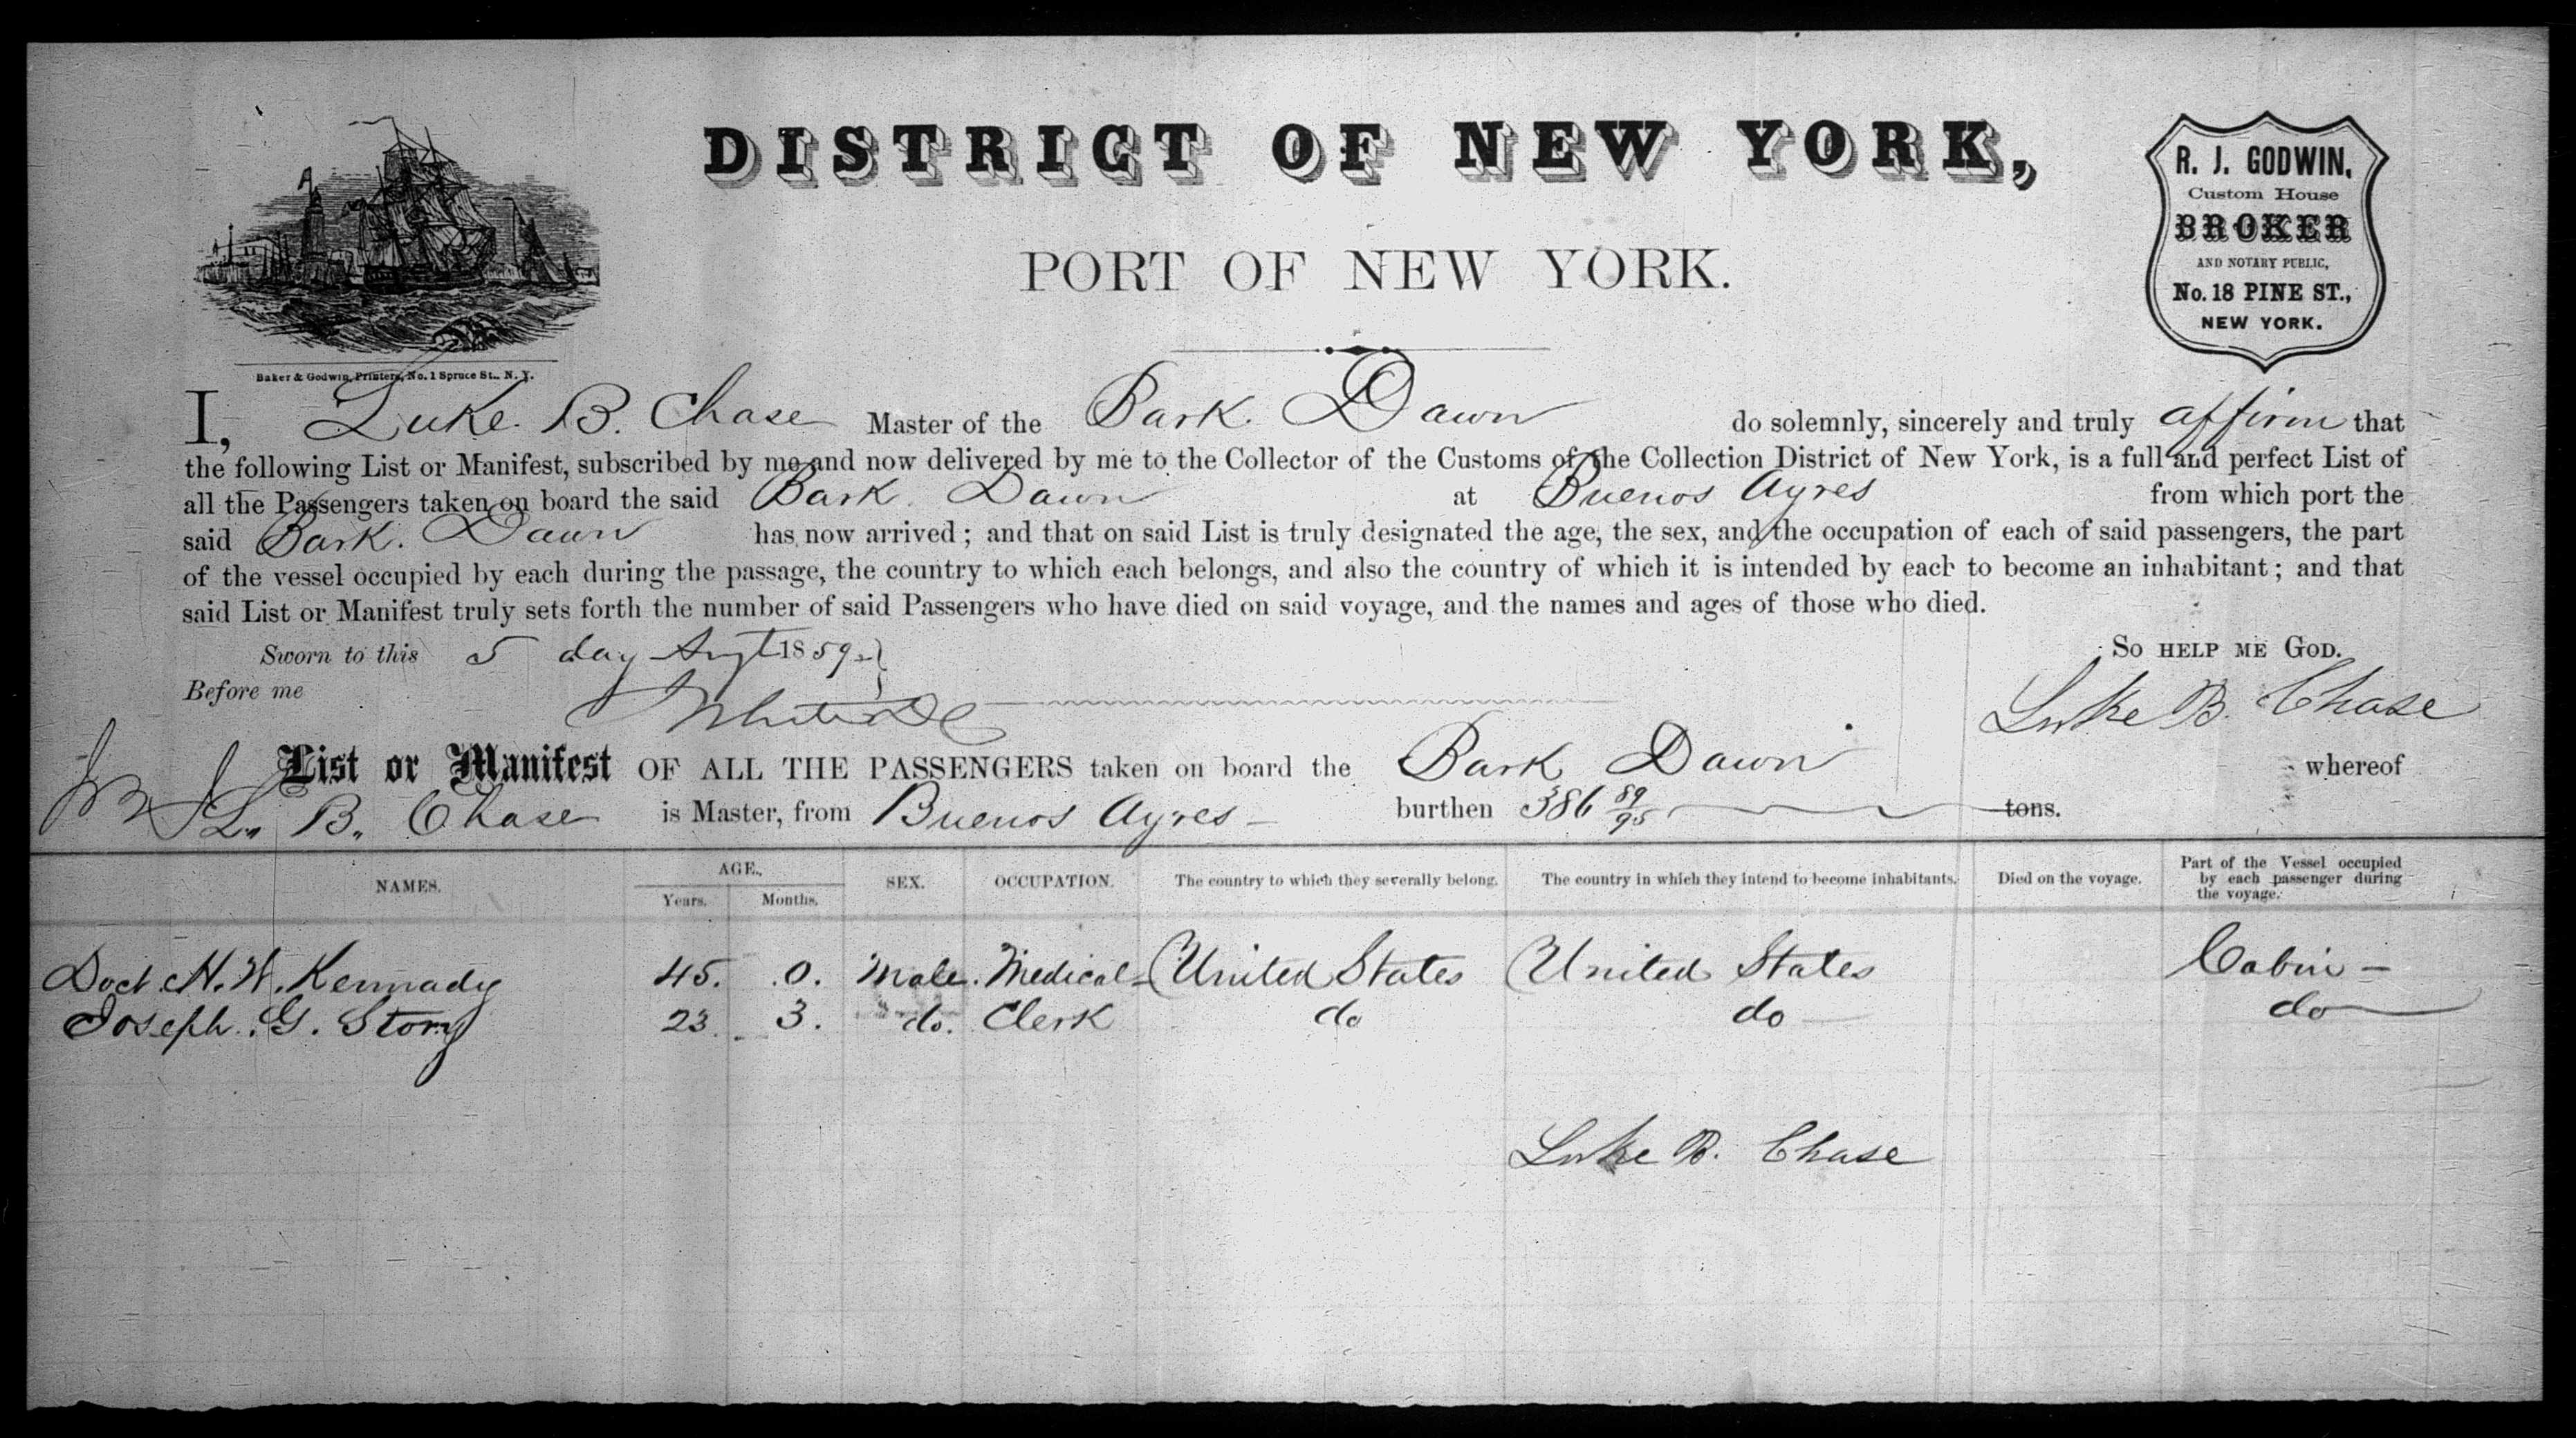 DISTRICT OF NEW YORK,
PORT OF NEW YORK.
R. J. GODWIN,
Custom House
BROKER
AND NOTARY PUBLIC,
No. 18 PINE ST.,
NEW YORK.
Baker & Godwin, Printers, No. 1 Spruce St., N. Y.
I, Luke. B. Chase Master of the Bark. Dawn do solemnly, sincerely and truly affirm that
the following List or Manifest, subscribed by me and now delivered by me to the Collector of the Customs of the Collection District of New York, is a full and perfect List of
all the Passengers taken on board the said Bark. Dawn at Buenos Ayres from which port the
said Bark. Dawn has now arrived; and that on said List is truly designated the age, the sex, and the occupation of each of said passengers, the part
of the vessel occupied by each during the passage, the country to which each belongs, and also the country of which it is intended by each to become an inhabitant; and that
said List or Manifest truly sets forth the number of said Passengers who have died on said voyage, and the names and ages of those who died.
Sworn to this 5 day Augt 1859 So HELP ME GOD.
Before me Luke B. Chase
List or Manifest OF ALL THE PASSENGERS taken on board the Bark Dawn whereof
L. B. Chase is Master, from Buenos Ayres - burthen 386 89/95 tons.
NAMES. AGE. SEX. OCCUPATION. The country to which they severally belong. The country in which they intend to become inhabitants. Died on the voyage. Part of the Vessel occupied by each passenger during the voyage.
Years. Months.
Doct. H. W. Kennady 45. .0. Male. Medical- United States United States Cabin -
Joseph. G. Story 23 3. do. Clerk do do do
Luke B. Chase